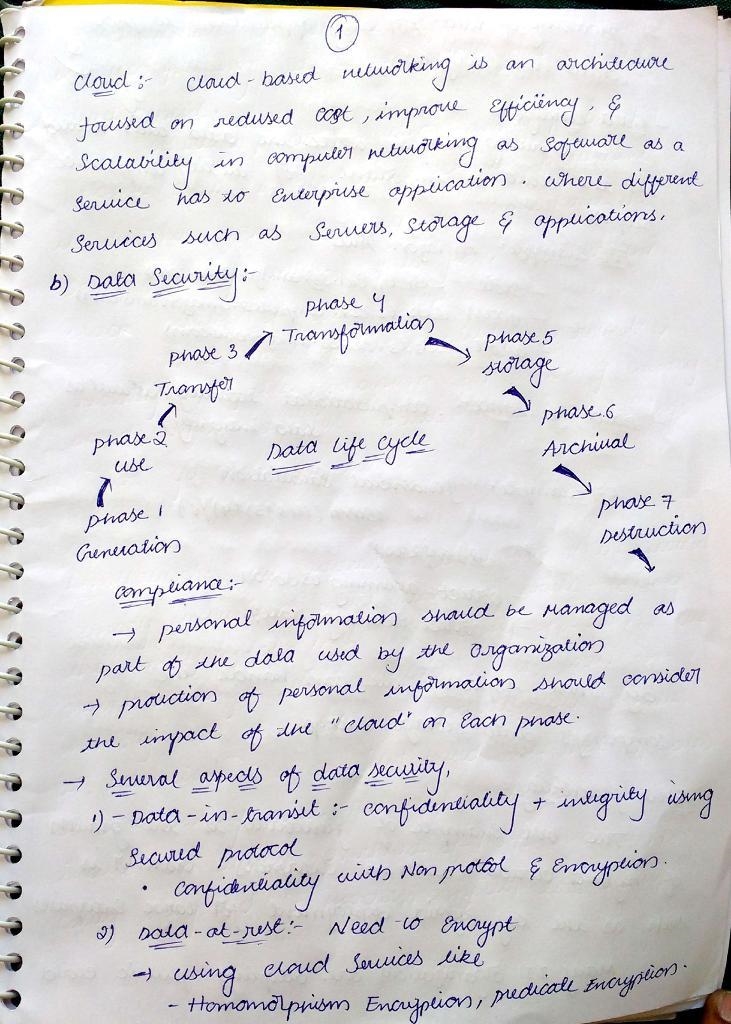 1
Cloud :- Cloud-based networking is an architecture
focused on redused cost, improve Efficiency, &
Scalability in computer networking as Software as a
Service has to Enterprise application. where different
Services such as Servers, Storage & applications.
b) Data Security:-
phase 4
Transformation
phase 3
Transfer
phase 5
storage
phase 2
use
phase 6
Archival
Data Life Cycle
phase 1
Generation
phase 7
Destruction
Compliance:-
→ personal information should be Managed as
part of the data used by the organization
→ protection of personal information should consider
the impact of the "cloud" on Each phase.
→ Several aspects of data security,
1) - Data-in-transit :- confidentiality + integrity using
Secured protocol
• Confidentiality with Non protol & Encryption.
2) Data-at-rest:- Need to Encrypt
→ using cloud Services like
- Homomorphism Encryption, predicate Encryption.